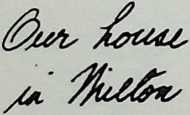 Our house
in Milton